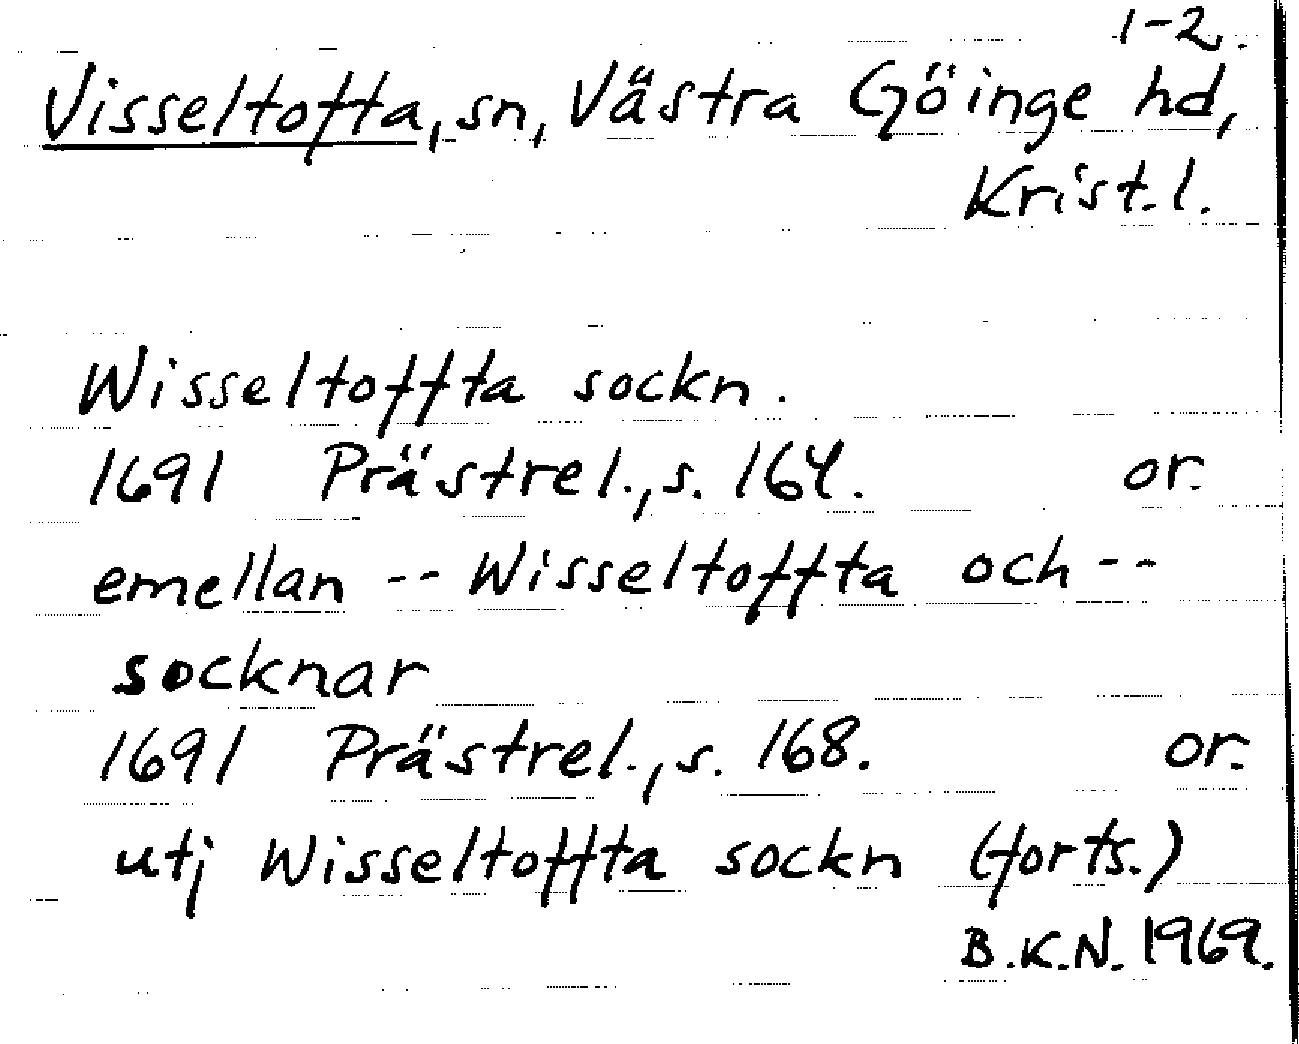 1-2.
Visseltofta, sn, Västra Göinge hd,
Krist. l.
Wisseltoffta sockn.
1691 Prästrel., s. 164. or.
emellan -- Wisseltoffta och --
socknar
1691 Prästrel., s. 168. or.
utj Wisseltoffta sockn (forts.)
B.K.N. 1969.